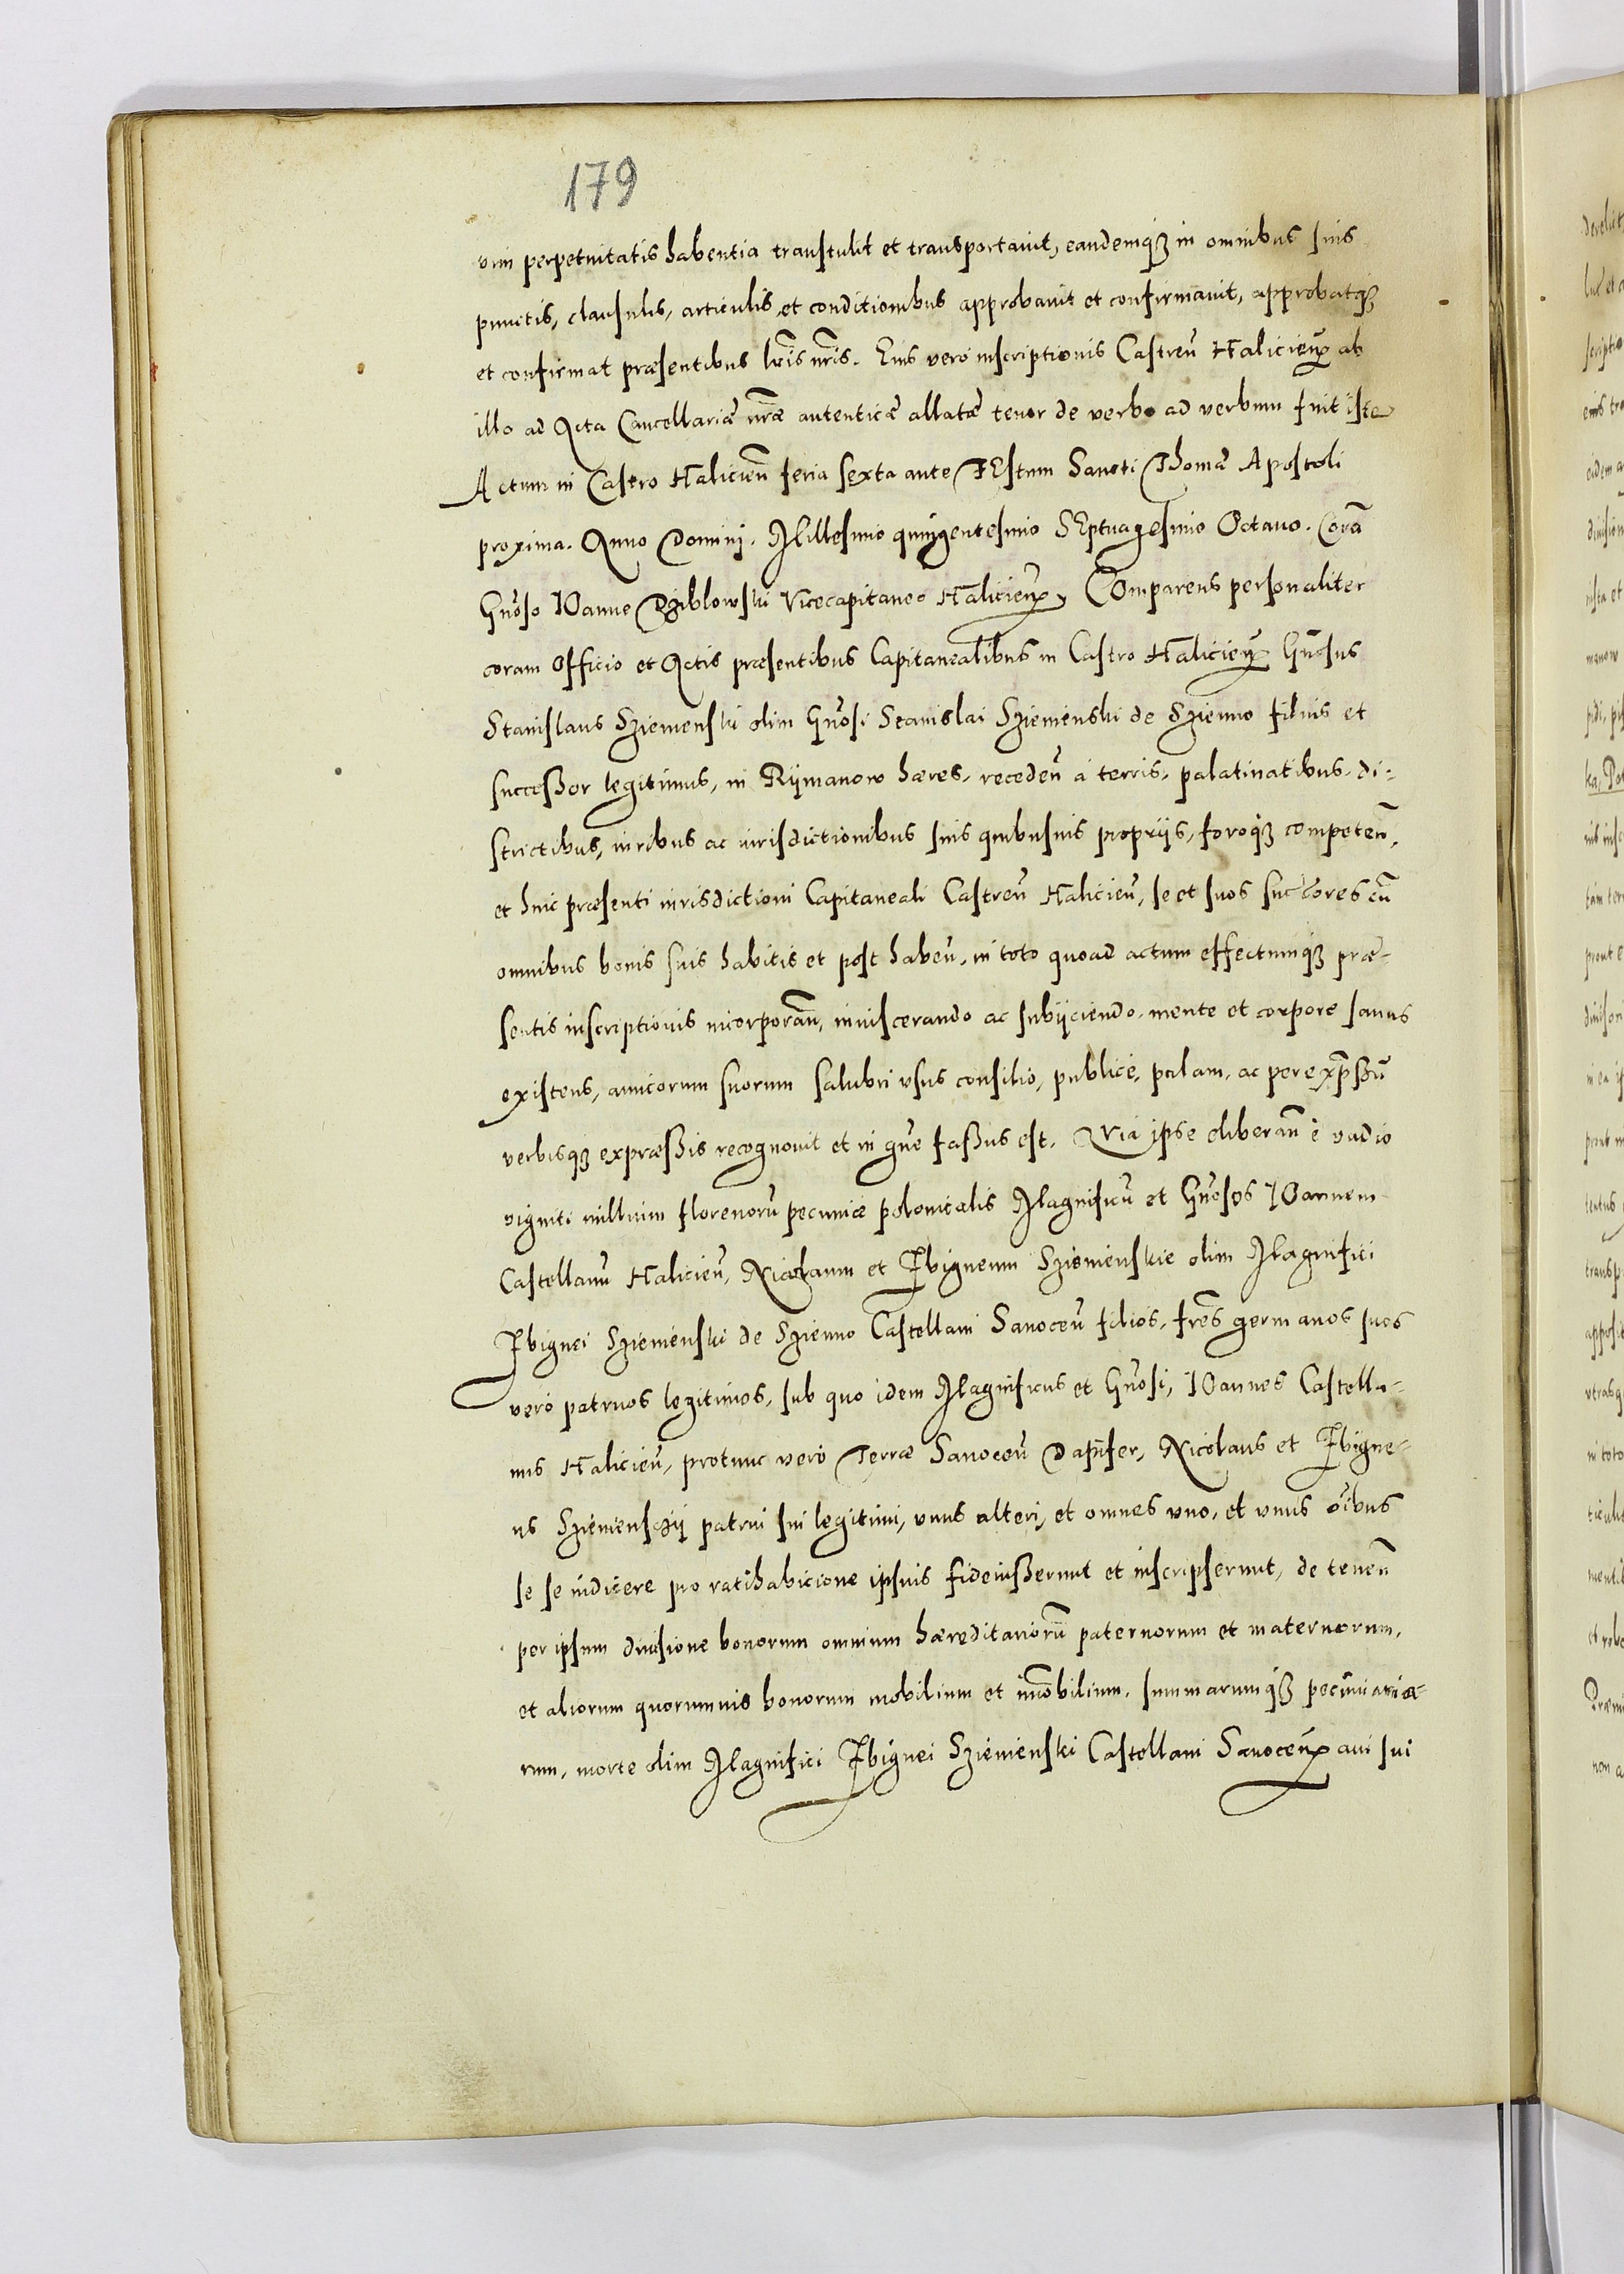 179
vim perpetuitatis habentia transtulit et transportauit, eandemqȝ in omnibus suis
punctis, clausulis, articulis, et conditionibus approbauit et confirmauit, approbatqȝ
et confirmat præsentibus lr̃is nr̃is. Eius vero inscriptionis Castreñ Halicieñ ab
illo ad Acta Cancellariæ nr̃æ autenticæ allatæ tenor de verbo ad verbum fuit iste
Actum in Castro Halicieñ feria sexta ante FEstum Sancti Thomæ Apostoli
proxima. Anno Domini. Millesimo quingentesimo SEptuagesimo Octauo. Corã
Gñoso IOanne Dziblowski Vicecapitaneo Halicieñ, COmparens personaliter
coram Officio et Actis præsentibus Capitanealibus in Castro Halicieñ Gñosus
Stanislaus Sziemenski olim Gñosi Stanislai Sziemienski de Szienno filius et
successor legitimus, in Rijmanow hæres, recedeñ à terris, palatinatibus, di-
strictibus, iuribus ac iurisdictionibus suis quibusuis proprijs, foroqȝ competeñ,
et huic præsenti iurisdictioni Capitaneali Castreñ Halicieñ, se et suos succ̃ores cũ
omnibus bonis suis habitis et post habeñ, in toto quoad actum effectumqȝ præ-
sentis inscriptionis incorporañ, inuiscerando ac subijciendo, mente et corpore sanus
existens, amicorum suorum salubri vsus consilio, publicè, palam, ac per exp̃ssũ
verbisqȝ expræssis recognouit et in gñe fassus est. QVia ipse eliberañ è vadio
viginti millium florenorũ pecuniæ polonicalis Magnificũ et Gñosos IOannem
Castellanũ Halicieñ, Nicolaum et Zbigneum Sziemienskie olim Magnifici
Zbignei Sziemienski de Szienno Castellani Sanoceñ filios, fr̃es germanos suos
verò patruos legitimos, sub quo idem Magnificus et Gñosi, IOannes Castella-
nus Halicieñ, protunc verò Terræ Sanoceñ Dapifer, Nicolaus et Zbigne-
us Sziemienscij patrui sui legitimi, vnus alteri, et omnes vno, et vnus oĩbus
se se indicere pro ratihabicione ipsius fideiusserunt et inscripserunt, de teneñ
per ipsum diuisione bonorum omnium hæreditariorũ paternorum et maternorum,
et aliorum quorumuis bonorum mobilium et im̃obilium, summarumqȝ pecuniaria-
rum, morte olim Magnifici Zbignei Sziemienski Castellani Sanoceñ aui sui